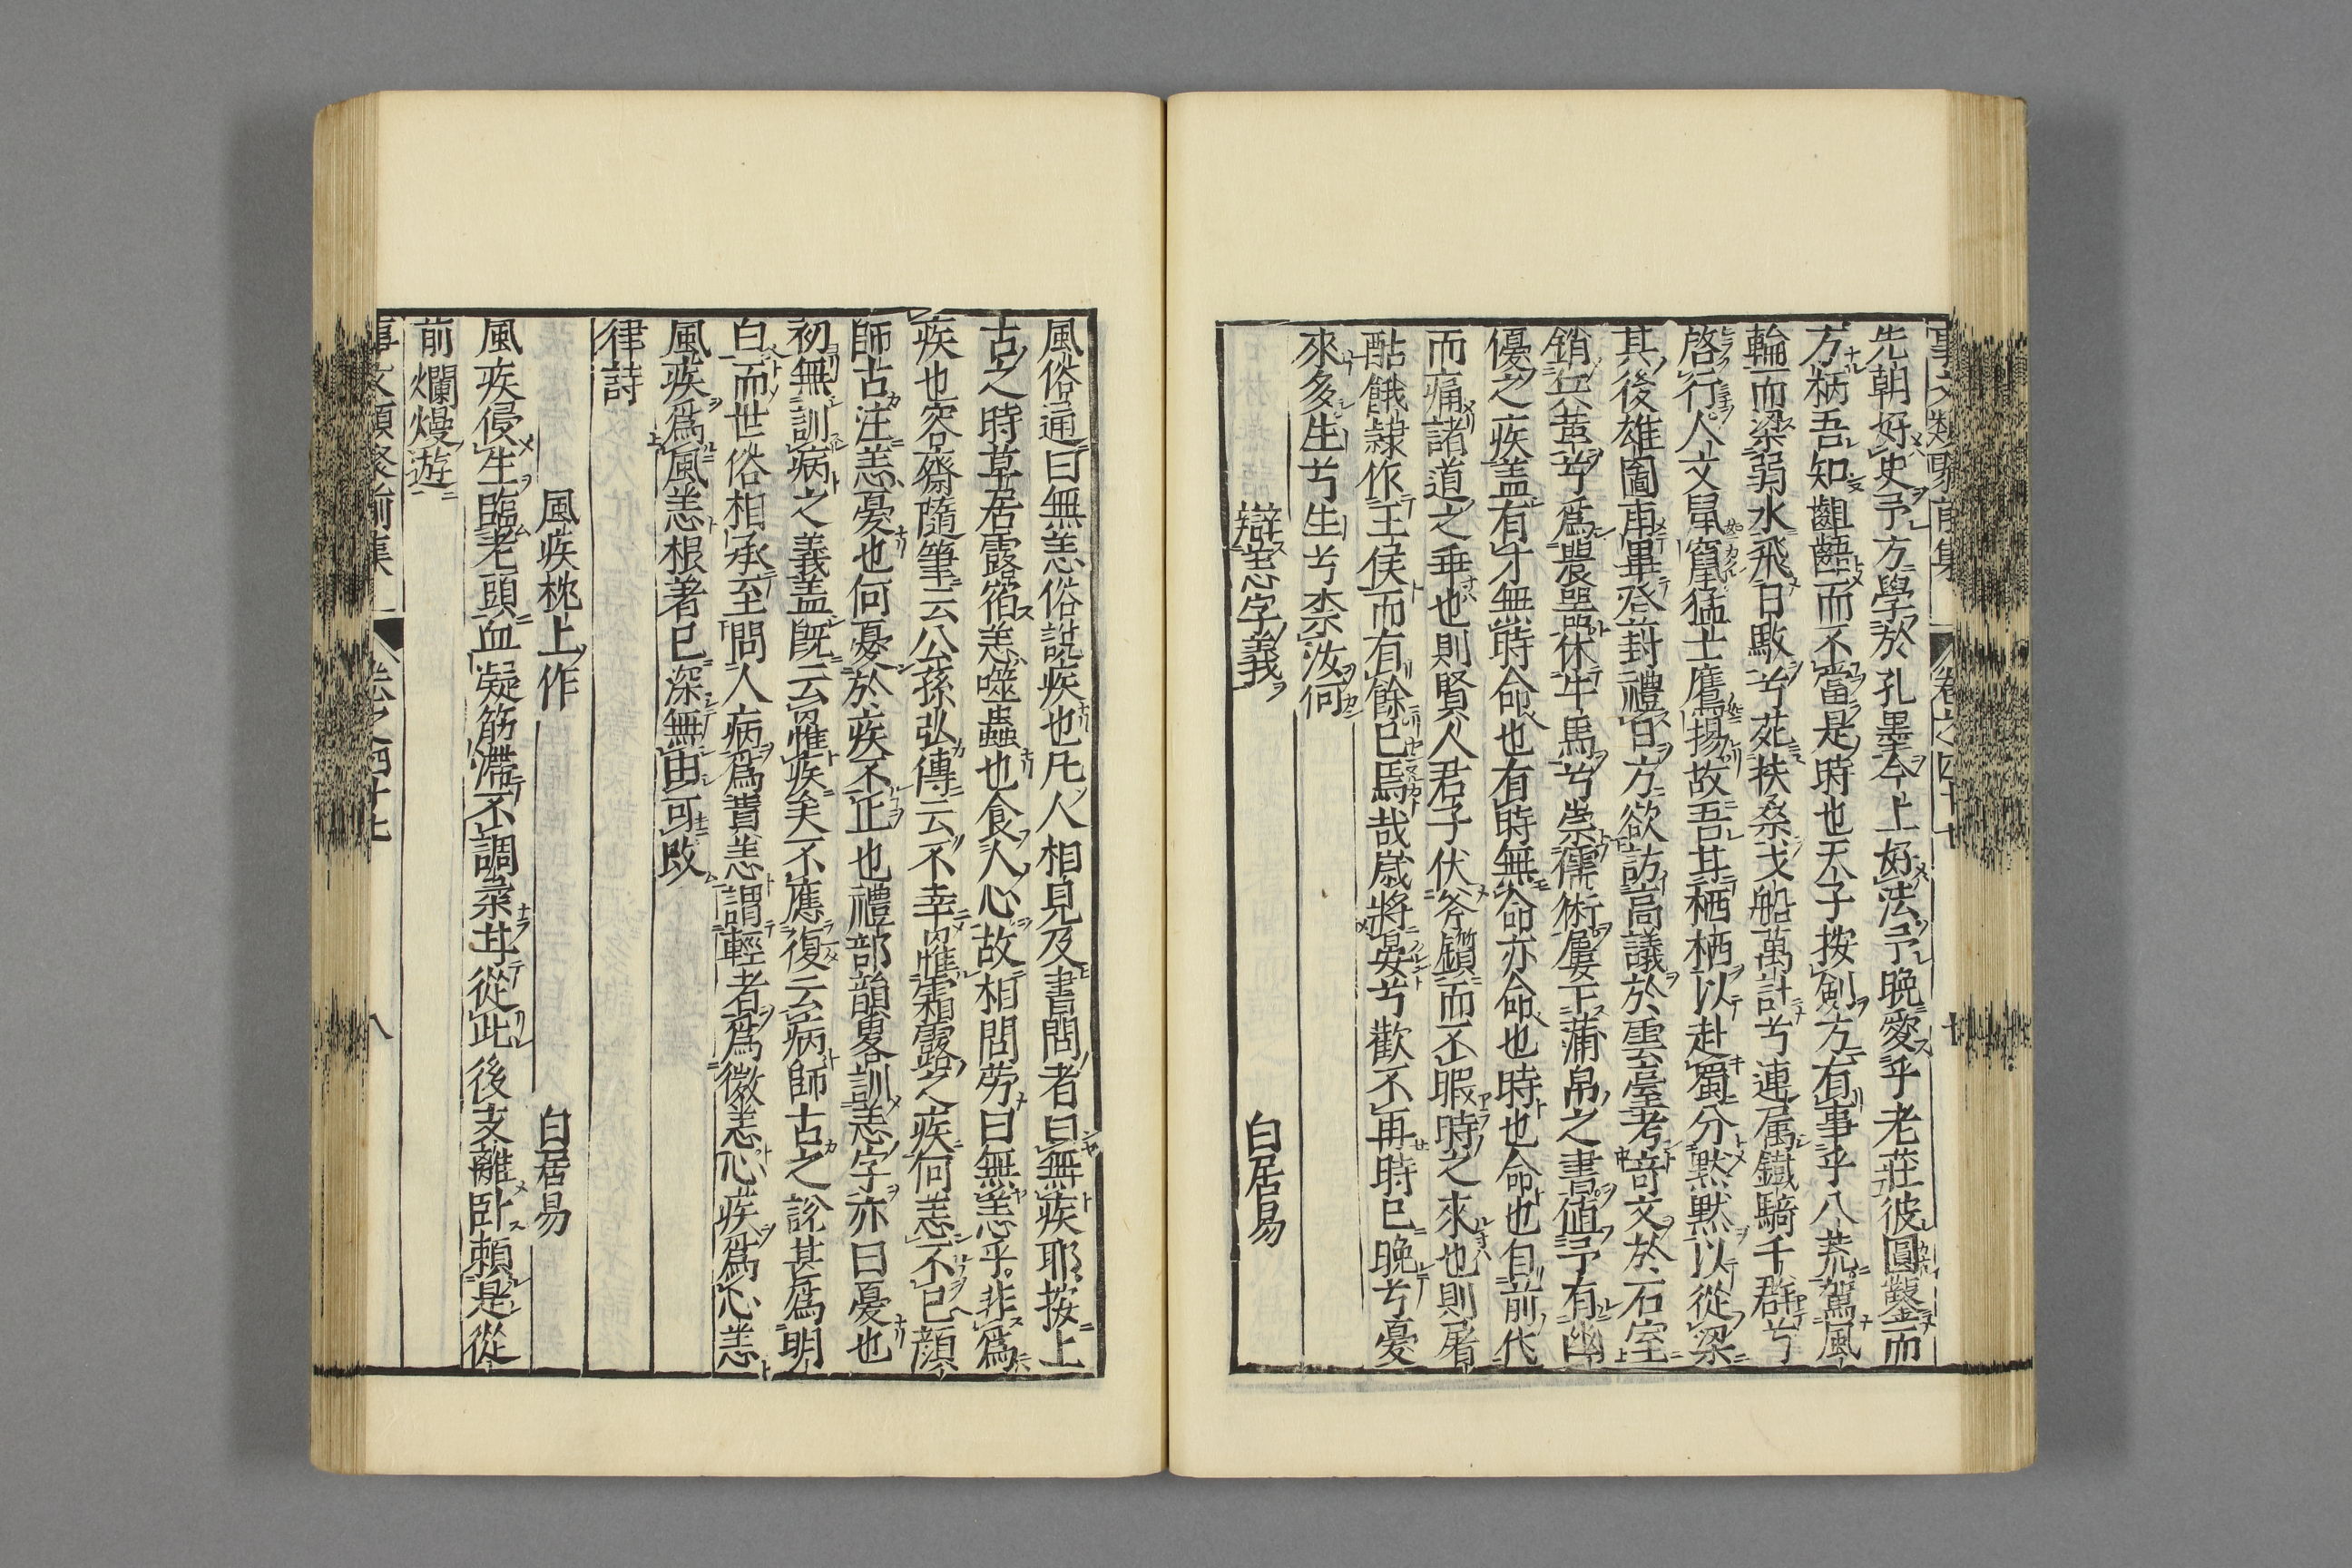 先朝好史予方學於孔墨今上好法予晚愛乎老莊彼圓鑿而
方枘吾知齟齬而不當是時也天子按劍方有事乎八荒駕風
輪而梁弱水飛日馭兮苑扶桑戈船萬計兮連屬鐵騎千群兮
啓行人文鼠竄猛士鷹揚故吾甘栖栖以赴蜀分默默以從梁
其後雄圖甫畢登封禮日方欲訪高議於雲臺考奇文於石室
銷兵黃兮爲農器休牛馬兮崇儒術屢下蒲帛之書值予有幽
優之疾盖有才無時命也有時無命亦命也時也命也自前代
而痛諸道之乖也則賢人君子伏斧鑕而不暇時之來也則屠
酤餓隸作王侯而有餘已焉哉歲將晏兮歡不再時已晚兮憂
來多生兮生兮柰汝何
辯恙字義 白居易
風俗通曰無恙俗說疾也凡人相見及書問者曰無疾耶按上
古之時草居露宿恙噬蟲也食人心故相問勞曰無恙乎非爲
疾也容齋隨筆云公孫弘傳云不幸罹霜露之疾何恙不已顏
師古注恙憂也何憂於疾不止也禮部韻畧訓恙字亦曰憂也
初無訓病之義盖既云罹疾矣不應復云病師古之說甚爲明
白而世俗相承至問人病爲貴恙謂輕者爲微恙心疾爲心恙
風疾爲風恙根著已深無由可改
律詩
風疾枕上作 白居易
風疾侵生臨老頭血凝筋滯不調柔甘從此後支離卧賴是從
前爛熳遊
事文類聚前集 卷之四十七 八